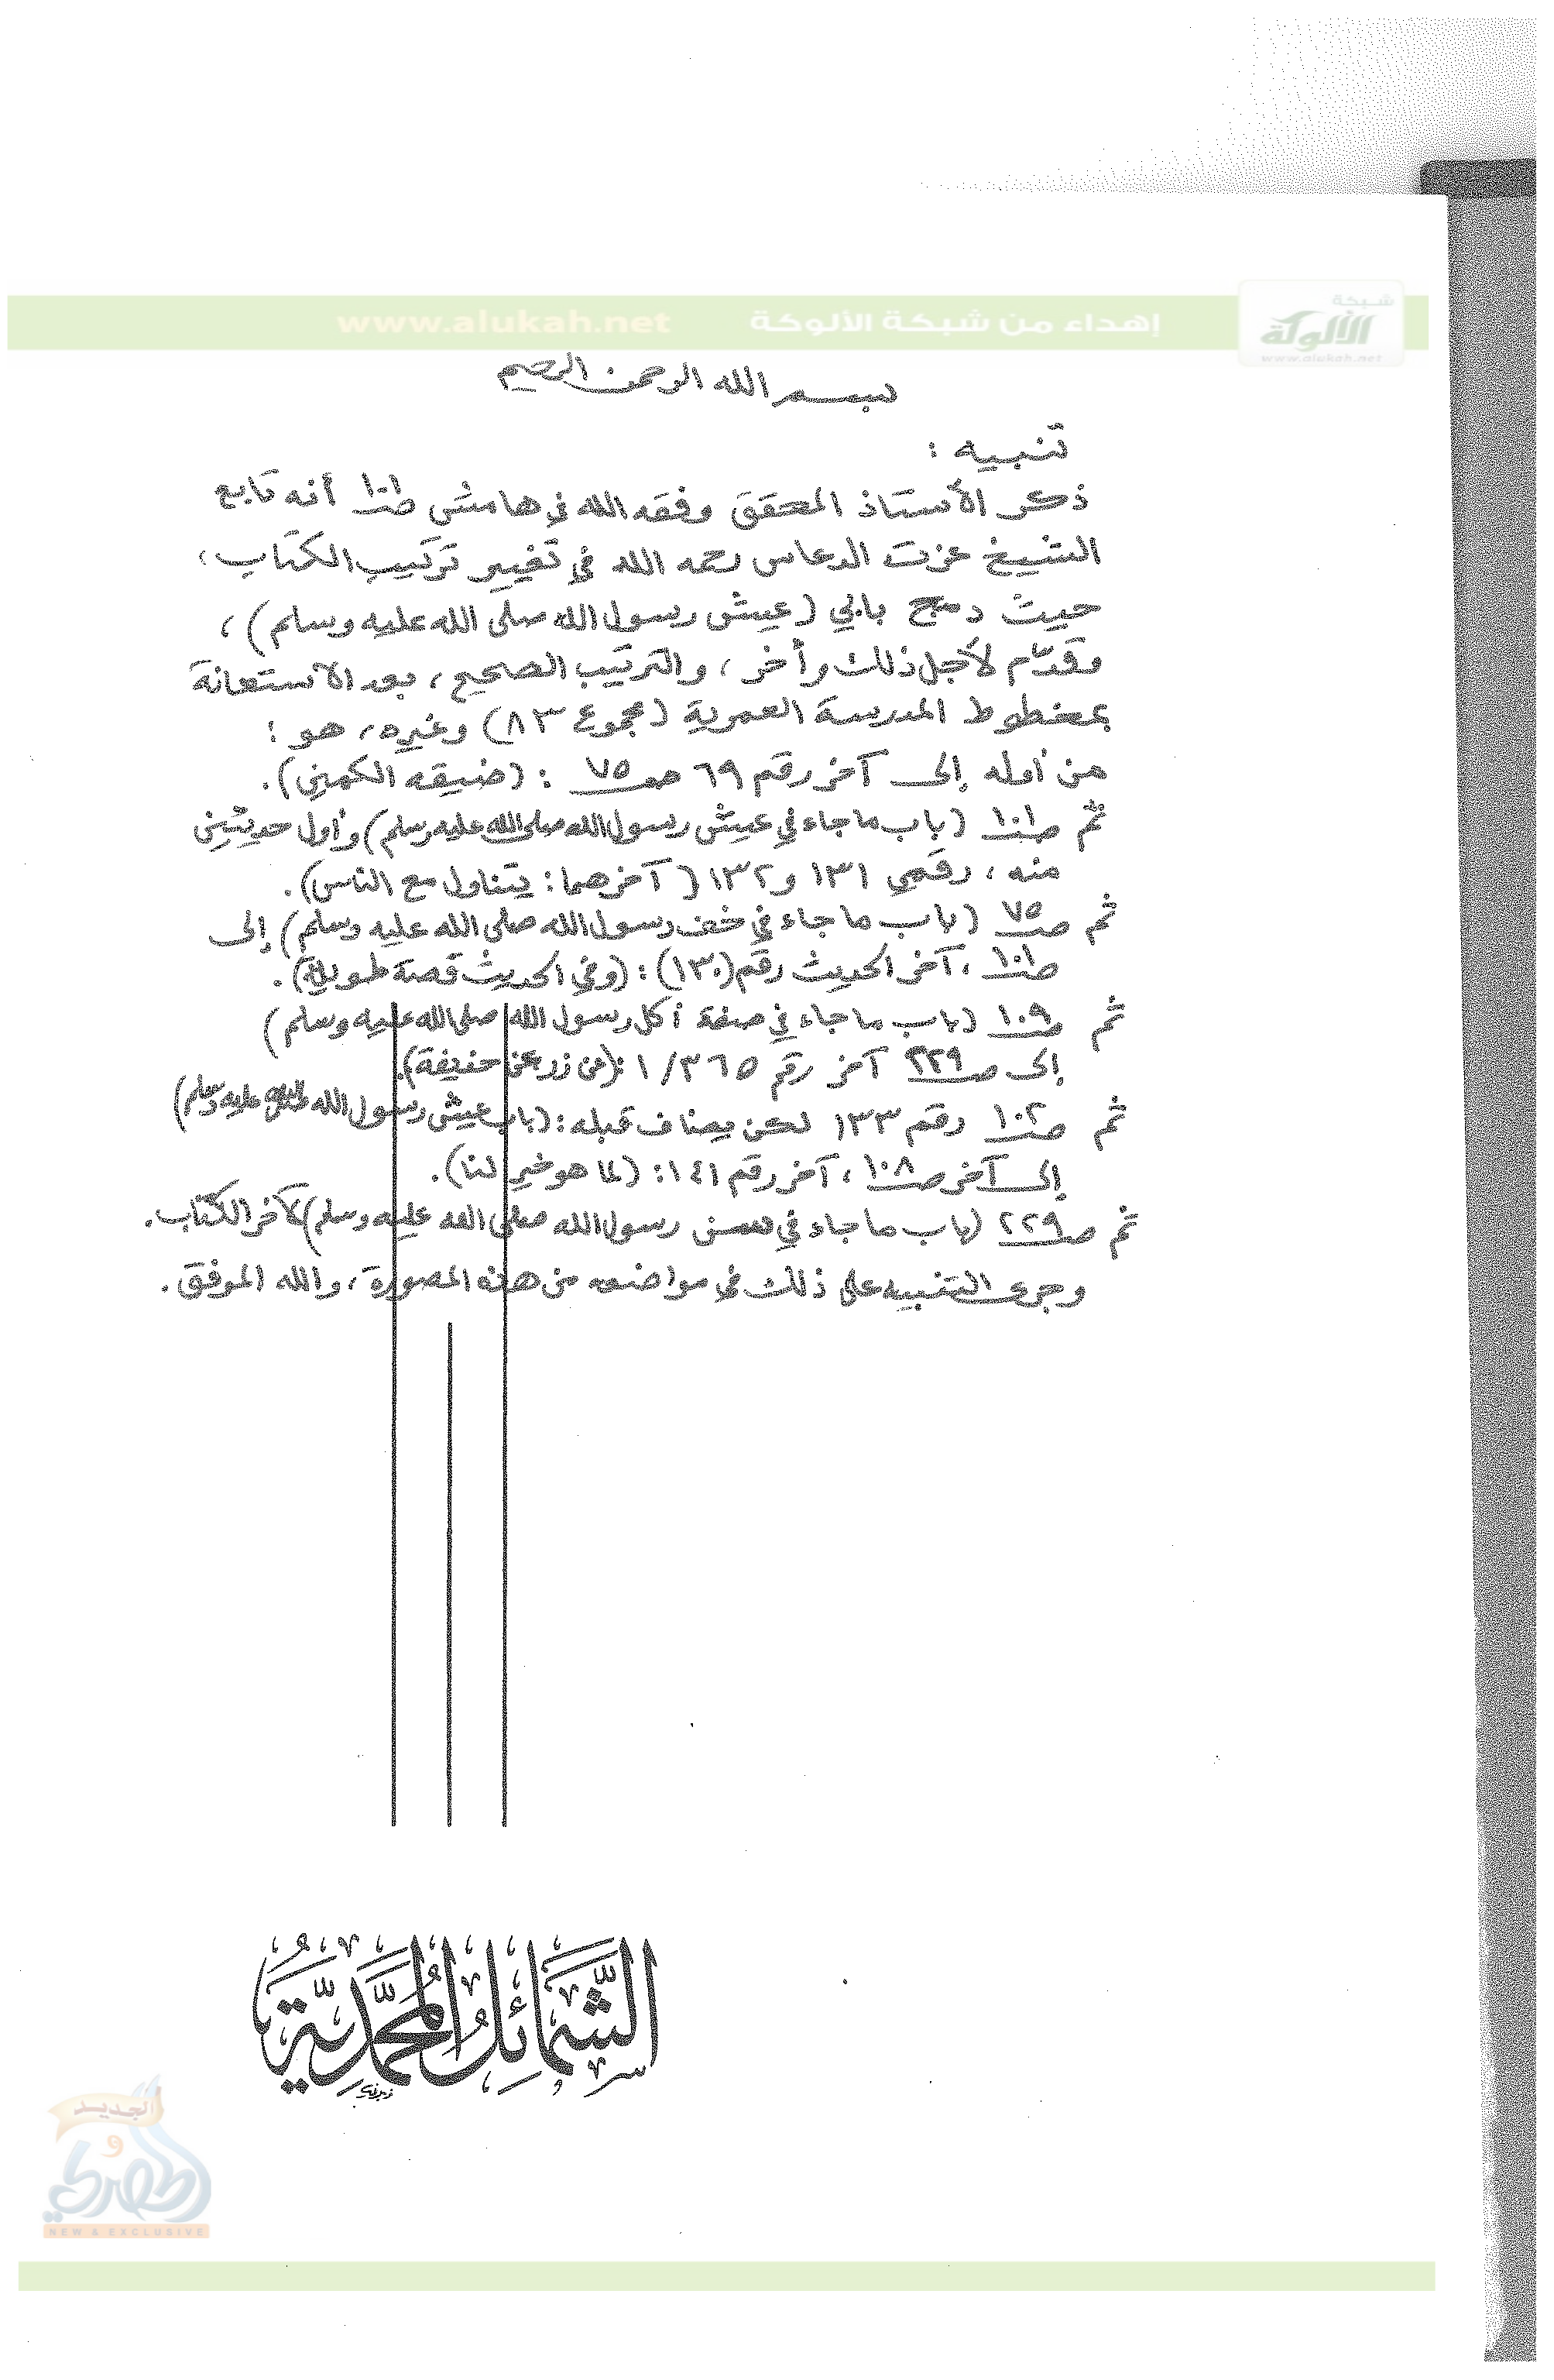 شبكة
الألوكة
www.alukah.net
إهداء من شبكة الألوكة www.alukah.net
بسم الله الرحمن الرحيم
تنبيه :
ذكر الأستاذ المحقق وفقه الله في هامش ص١٠١ أنه تابع
الشيخ عزت الدعاس رحمه الله في تغيير ترتيب الكتاب،
حيث دمج بابي (عيش رسول الله صلى الله عليه وسلم)،
وقدّم لأجل ذلك وأخر، والترتيب الصحيح، بعد الاستعانة
بمخطوط المدرسة العمرية (مجموع ٨٣) وغيره، هو :
من أوله إلى آخر رقم ٦٩ ص٧٥ : (ضيقة الكمين).
ثم ص١٠١ (باب ما جاء في عيش رسول الله صلى الله عليه وسلم) وأول حديثين
منه، رقمي ١٣١ و١٣٢ (آخرهما: يتناول مع الناس).
ثم ص٧٥ (باب ما جاء في خف رسول الله صلى الله عليه وسلم) إلى
ص١٠١، آخر الحديث رقم (١٣٠) : (وفي الحديث قصة طويلة).
ثم ص١٠٩ (باب ما جاء في صفة أكل رسول الله صلى الله عليه وسلم)
إلى ص٢٢٩ آخر رقم ٣٦٥/١ : (عن زر عن حذيفة).
ثم ص١٠٢ رقم ١٣٣ لكن يضاف قبله : (باب عيش رسول الله صلى الله عليه وسلم)
إلى آخر ص١٠٨، آخر رقم ١٤١ : (لما هو خير لنا).
ثم ص٢٢٩ (باب ما جاء في سن رسول الله صلى الله عليه وسلم) لآخر الكتاب.
وجرى التنبيه على ذلك في مواضعه من هذه المصورة، والله الموفق.
الشَّمَائِلُ المُحَمَّدِيَّةُ
الجديد
و
الحصري
NEW & EXCLUSIVE